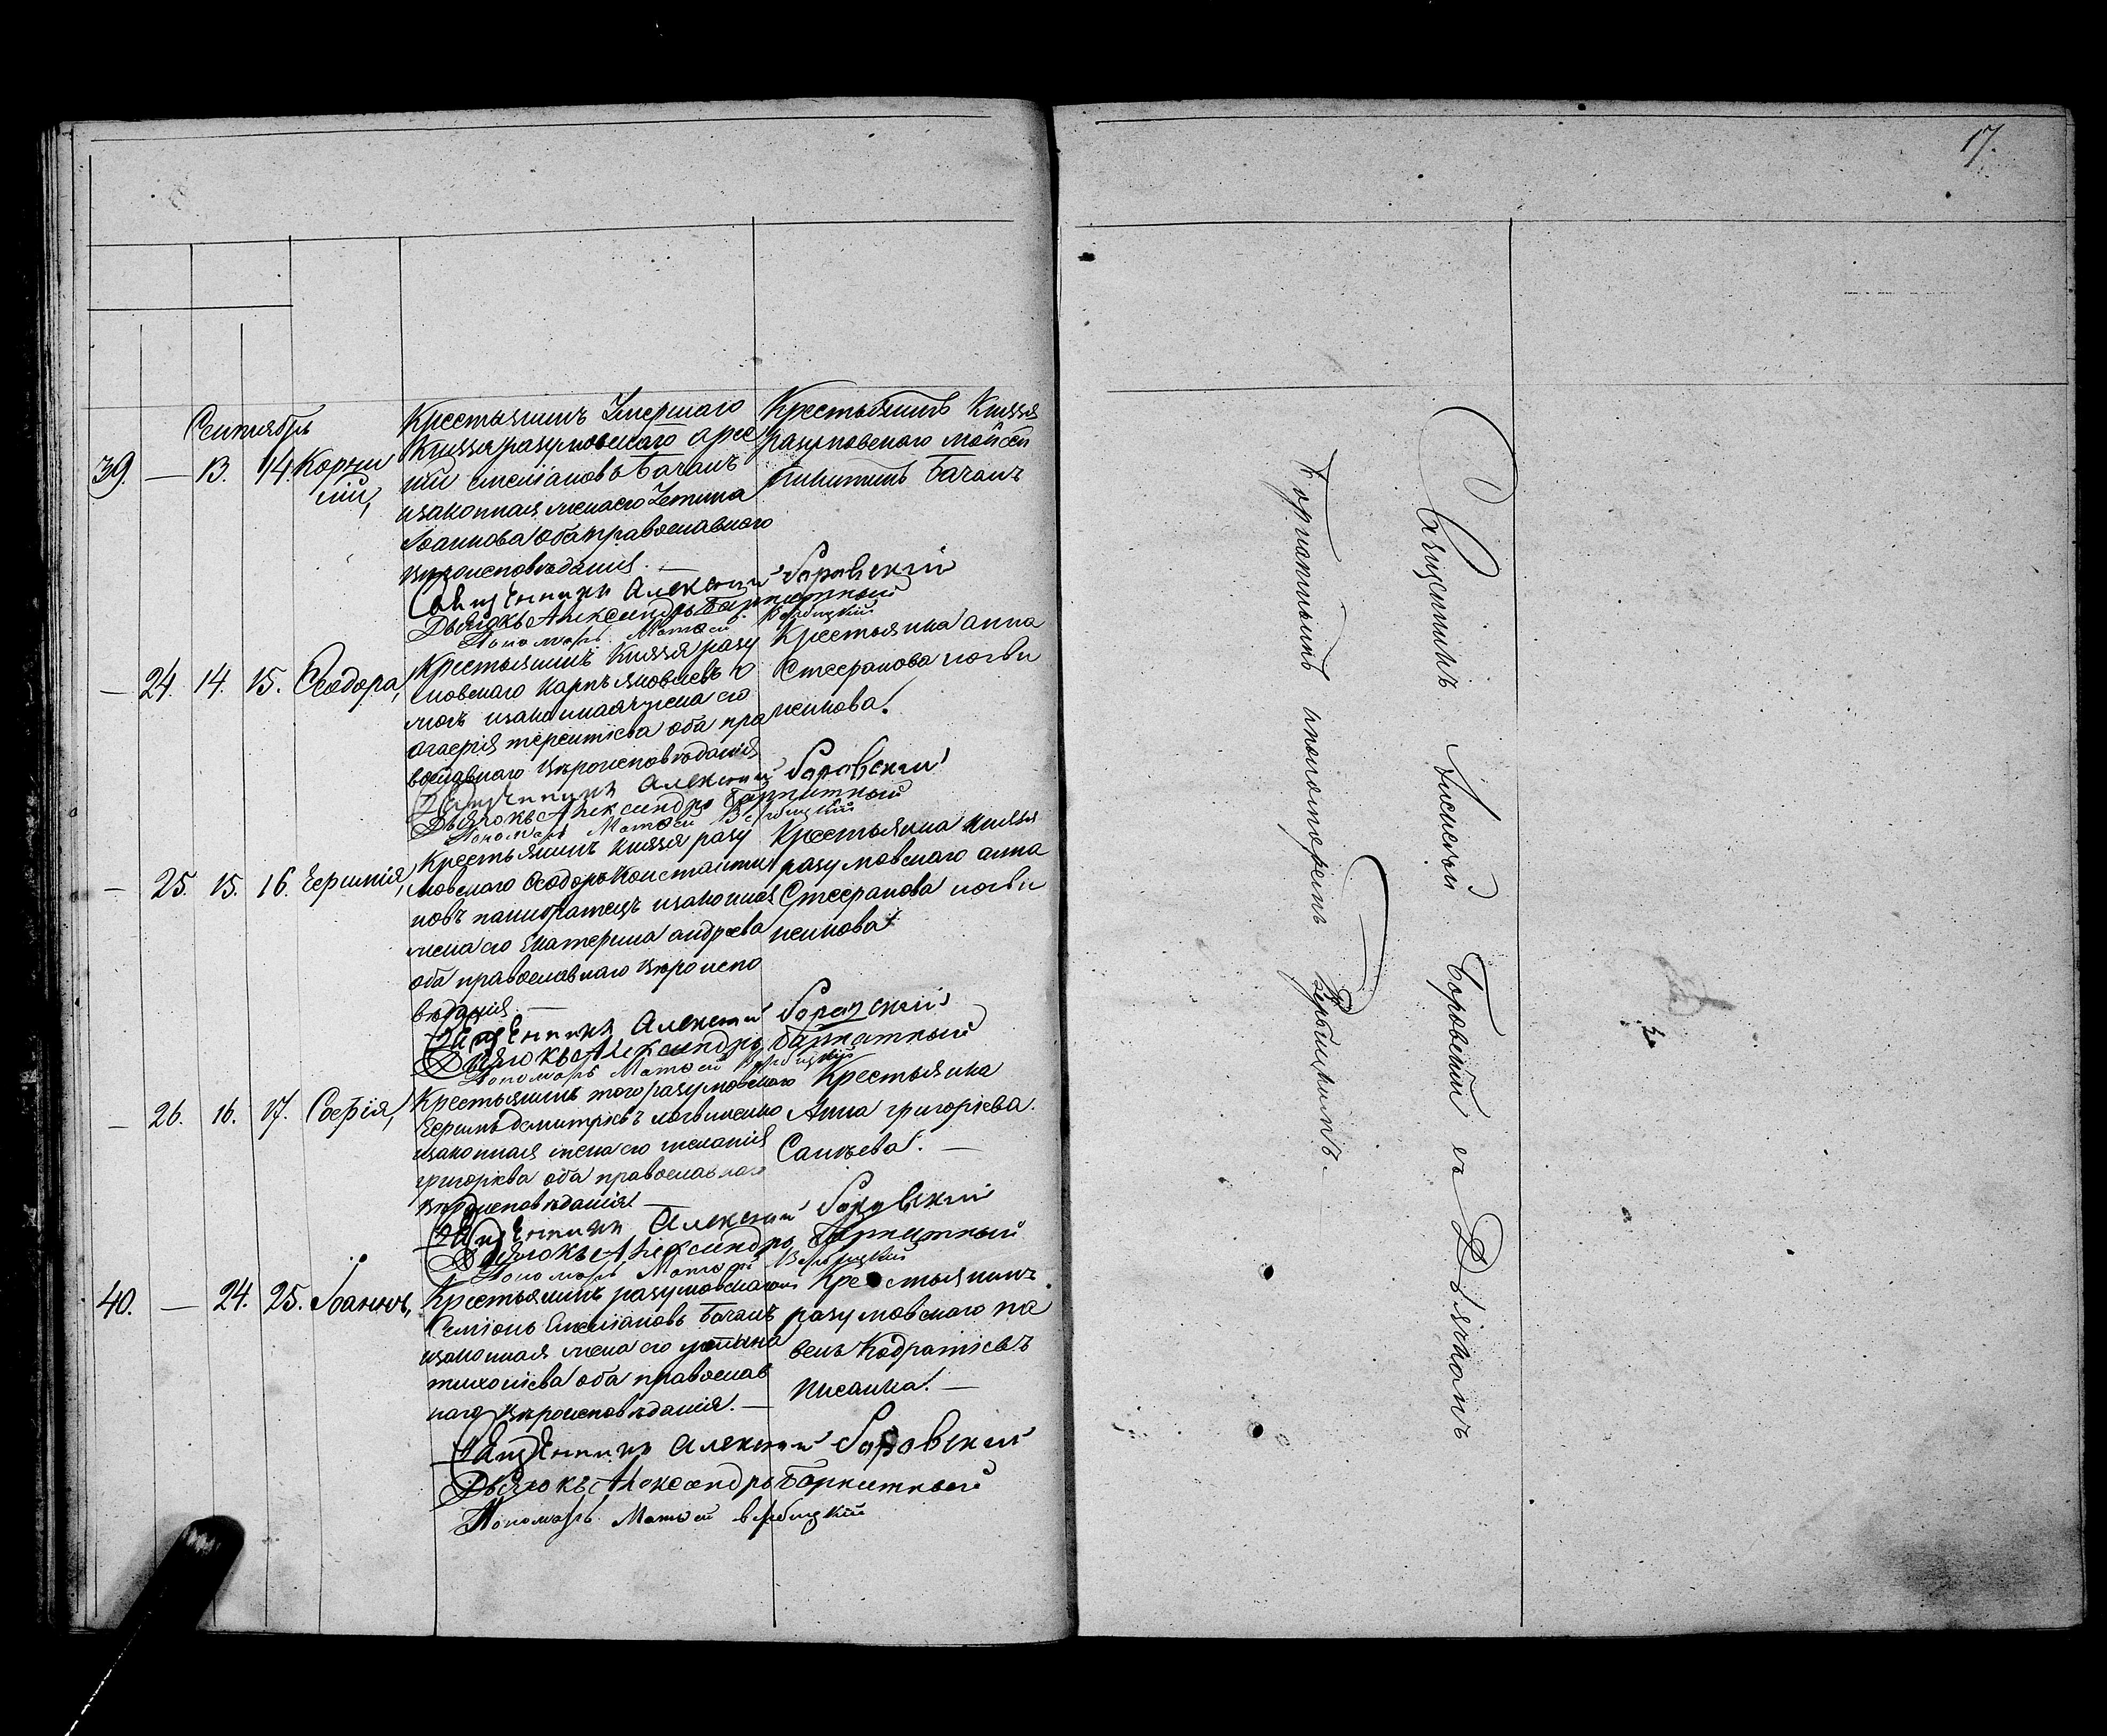 17.
Сентябрь
39. — 13. 14. Корни
лій,
Крестьянинъ Умершаго
Князя разумовскаго арсе
ній емеліановъ Бачанъ
изаконная жена его Устина
Іоаннова оба православнаго
вѣроисповѣданія. —
Крестьянинъ Князя
разумовскаго мойсей
Никитинъ Бачанъ
Священникъ Алексѣй Боровскій
Дьячокъ Александръ Бориатный
Пономарь Матѳей Вербицкій
— 24. 14. 15. Ѳеодора,
Крестьянинъ Князя разу
мовскаго карпъ яковлевъ
изаконная жена его
агафія терентіева оба пра
вославнаго вѣроисповѣданія
Крестьянка анна
Стефанова логви
ненкова.
Священникъ Алексѣй Боровскій
Дьячокъ Александръ Бориатный
Пономарь Матѳей Вербицкій
— 25. 15. 16. Ефимія,
Крестьянинъ князя разу
мовскаго Ѳеодоръ Константи
новъ изаконная
жена его Екатерина андреева
оба православнаго вѣроиспо
вѣданія. —
Крестьянка князя
разумовскаго анна
Стефанова логви
ненкова
Священникъ Алексѣй Боровскій
Дьячокъ Александръ Бориатный
Пономарь Матѳей Вербицкій
— 26. 16. 17. Софія,
Крестьянинъ того разумовскаго
Ефимъ димитріевъ логвиненко
изаконная жена его меланія
григоріева оба православнаго
вѣроисповѣданія —
Крестьянка
Анна григоріева
Санѣева. —
Священникъ Алексѣй Боровскій
Дьячокъ Александръ Бориатный
Пономарь Матѳей Вербицкій
40. — 24. 25. Іоаннъ,
Крестьянинъ разумовскаго
Семіонъ Емеліановъ Бачанъ
изаконная жена его
тихоніева оба православ
наго вѣроисповѣданія. —
Крестьянинъ
разумовскаго па
велъ Кодратіевъ
Писанка. —
Священникъ Алексѣй Боровскій
Дьячокъ Александръ Бориатный
Пономарь Матѳей Вербицкій
Священникъ Алексѣй Боровскій съ Дьячкомъ
Бориатнымъ ипономаремъ Вербицкимъ.